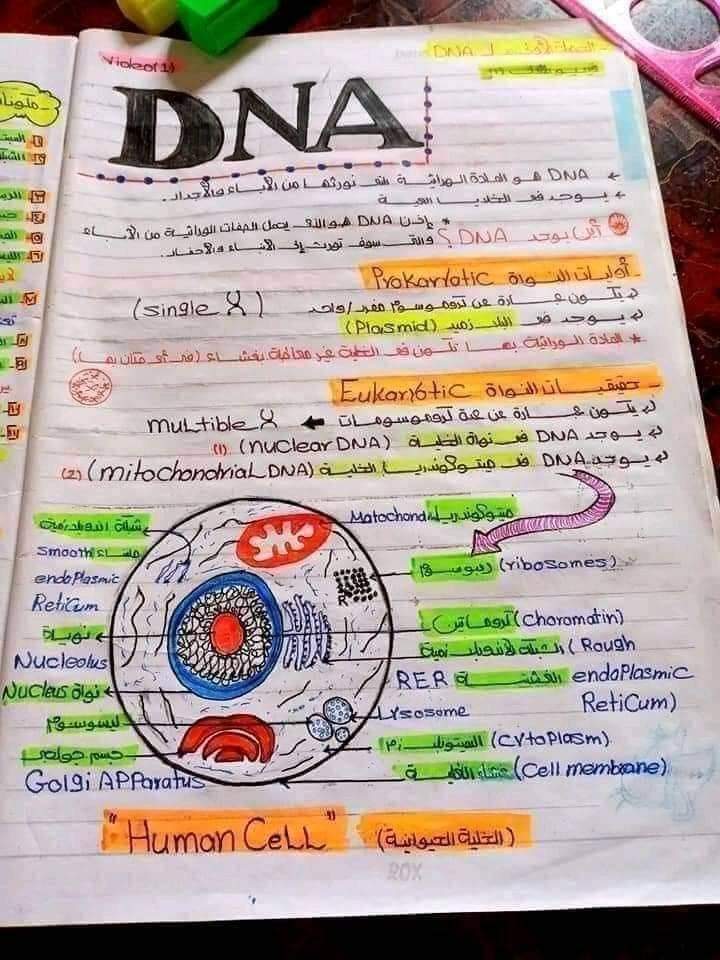 Video(1)
DNA
DNA هو المادة الوراثية التي نورثها من الآباء والأجداد.
يوجد في الخلايا الحية
أين يوجد DNA ؟
* إذن DNA هو الذي يحمل الصفات الوراثية من الآباء
والتي سوف تورث إلى الأبناء والأحفاد.
- أوليات النواة Prokaryotic
يتكون عبارة عن كروموسوم مفرد/واحد (single X)
يوجد في البلازميد (Plasmid)
* المادة الوراثية بها تكون في الخلية غير محاطة بغشاء (في أي مكان بها)
- حقيقيات النواة Eukaryotic
يتكون عبارة عن عدة كروموسومات ← multible X
يوجد DNA في نواة الخلية (nuclear DNA) (1)
يوجد DNA في ميتوكوندريا الخلية (mitochondrial DNA) (2)
ميتوكوندريا Matochond
شبكة اندوبلازمية
ملساء Smooth
endoplasmic
Reticum
ريبوسوم (ribosomes)
R
كروماتين (Choromatin)
نوية
Nucleolus
الشبكة الأندوبلازمية (Rough
RER الخشنة endoplasmic
Reticum)
Nucleus نواة
ليسوسوم
Lysosome
السيتوبلازم (Cytoplasm)
جسم جولجي
Golgi Apparatus
غشاء الخلية (Cell membrane)
"Human Cell" (الخلية الحيوانية)